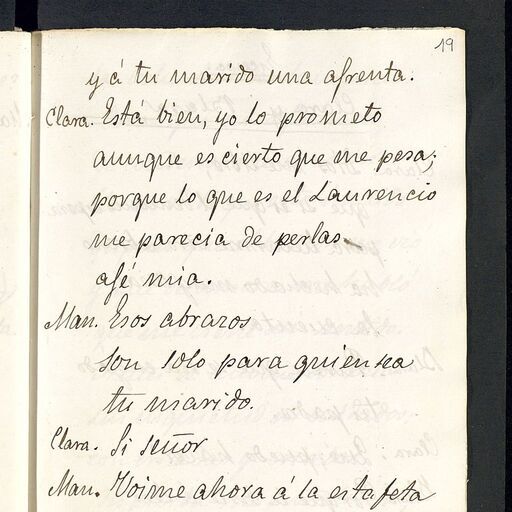 19
y á tu marido una afrenta.
Clara. Está bien, yo lo prometo
aunque es cierto que me pesa;
porque lo que es el Laurencio
me parecia de perlas
afé mia.
Man. Esos abrazos
son solo para quien sea
tu marido.
Clara. Si señor
Man. Voime ahora á la estafeta